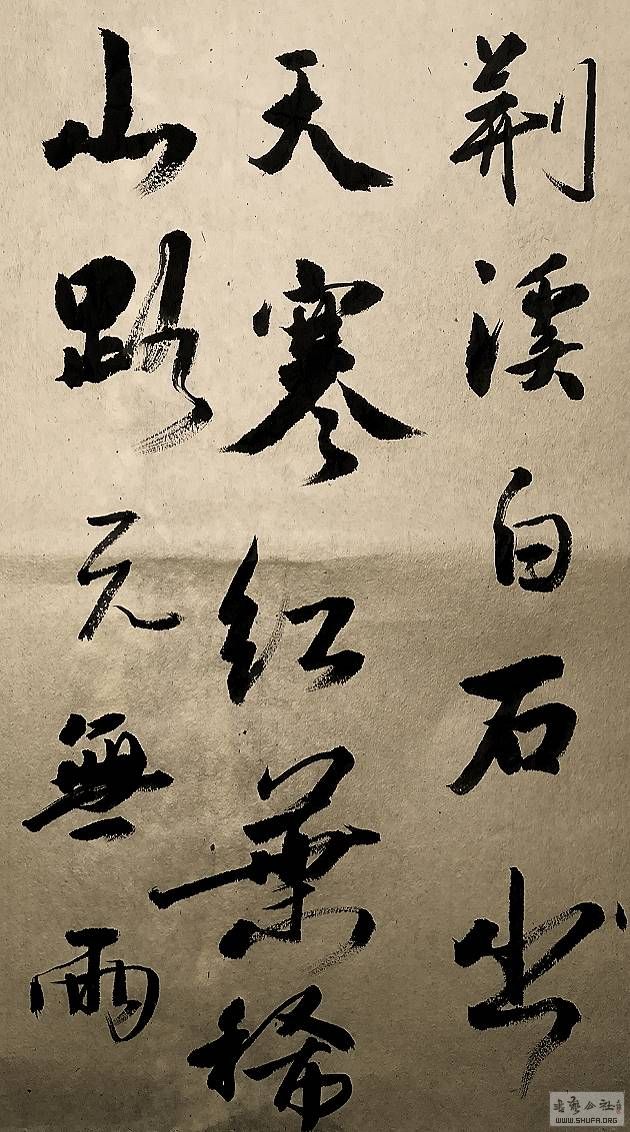 荆溪白石出
天寒红葉稀
山路元無雨
書藝公社
WWW.SHUFA.ORG